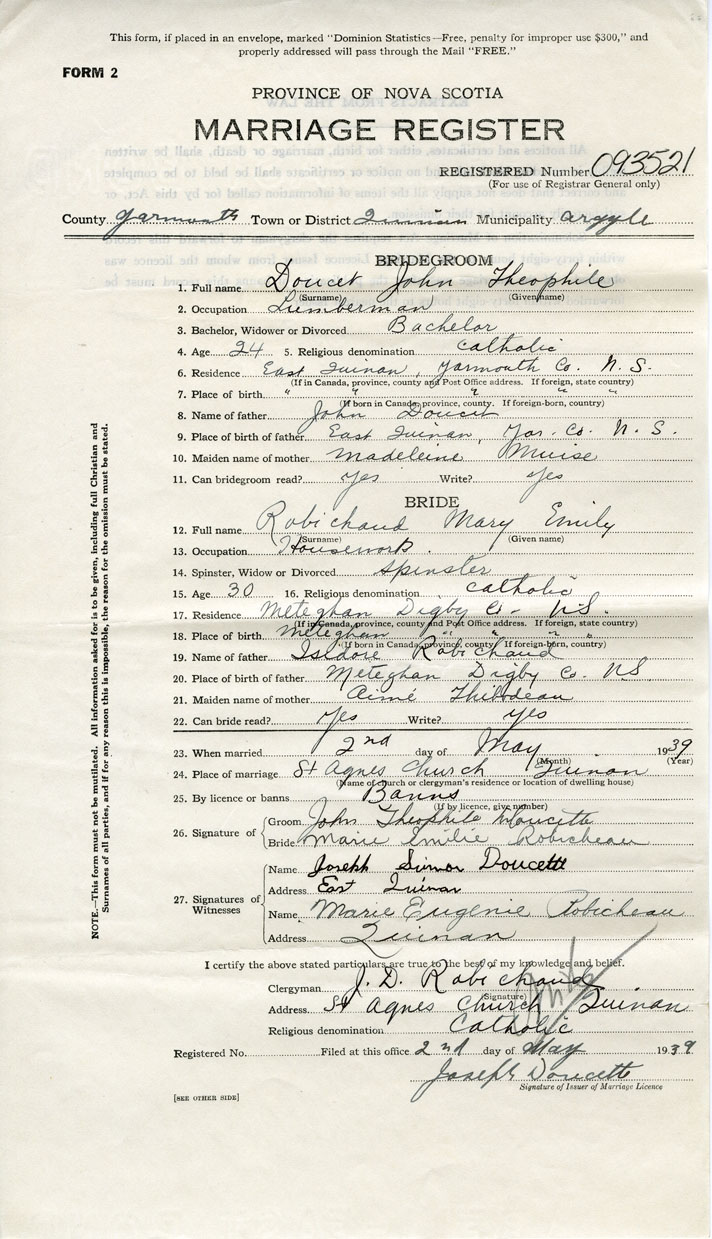 This form, if placed in an envelope, marked "Dominion Statistics—Free, penalty for improper use $300," and
properly addressed will pass through the Mail "FREE."
FORM 2
PROVINCE OF NOVA SCOTIA
MARRIAGE REGISTER
REGISTERED Number 093521
(For use of Registrar General only)
County Yarmouth Town or District Quinan Municipality Argyle
BRIDEGROOM
1. Full name Doucet John Theophile
(Surname) (Given name)
2. Occupation Lumberman
3. Bachelor, Widower or Divorced Bachelor
4. Age 24 5. Religious denomination Catholic
6. Residence East Quinan, Yarmouth Co. N.S.
(If in Canada, province, county and Post Office address. If foreign, state country)
7. Place of birth " " " " "
(If born in Canada, province, county. If foreign-born, country)
8. Name of father John Doucet
9. Place of birth of father East Quinan, Yar. Co. N.S.
10. Maiden name of mother Madeleine Muise
11. Can bridegroom read? Yes Write? Yes
BRIDE
12. Full name Robichaud Mary Emily
(Surname) (Given name)
13. Occupation Housework.
14. Spinster, Widow or Divorced Spinster
15. Age 30 16. Religious denomination Catholic
17. Residence Meteghan Digby Co- N.S.
(If in Canada, province, county and Post Office address. If foreign, state country)
18. Place of birth Meteghan " " " "
(If born in Canada, province, county. If foreign-born, country)
19. Name of father Isidore Robichaud
20. Place of birth of father Meteghan Digby Co. NS.
21. Maiden name of mother Aimé Thibodeau
22. Can bride read? Yes Write? Yes
23. When married 2nd day of May 1939
(Month) (Year)
24. Place of marriage St Agnes Church Quinan
(Name of church or clergyman's residence or location of dwelling house)
25. By licence or banns Banns
(If by licence, give number)
26. Signature of
Groom John Theophile Doucette
Bride Marie Emilie Robicheau
27. Signatures of Witnesses
Name Joseph Simon Doucette
Address East Quinan
Name Marie Eugenie Robicheau
Address Quinan
I certify the above stated particulars are true to the best of my knowledge and belief.
Clergyman J. D. Robichaud
(Signature)
Address St Agnes Church Quinan
Religious denomination Catholic
Registered No. Filed at this office 2nd day of May 1939
Joseph Doucette
Signature of Issuer of Marriage Licence
[SEE OTHER SIDE]
NOTE.—This form must not be mutilated. All information asked for is to be given, including full Christian and
Surnames of all parties, and if for any reason this is impossible, the reason for the omission must be stated.